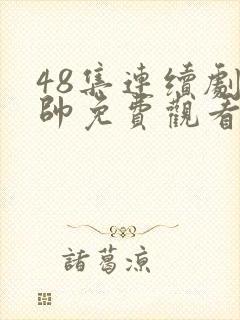 48集連續劇
帥免費觀看
諸葛涼